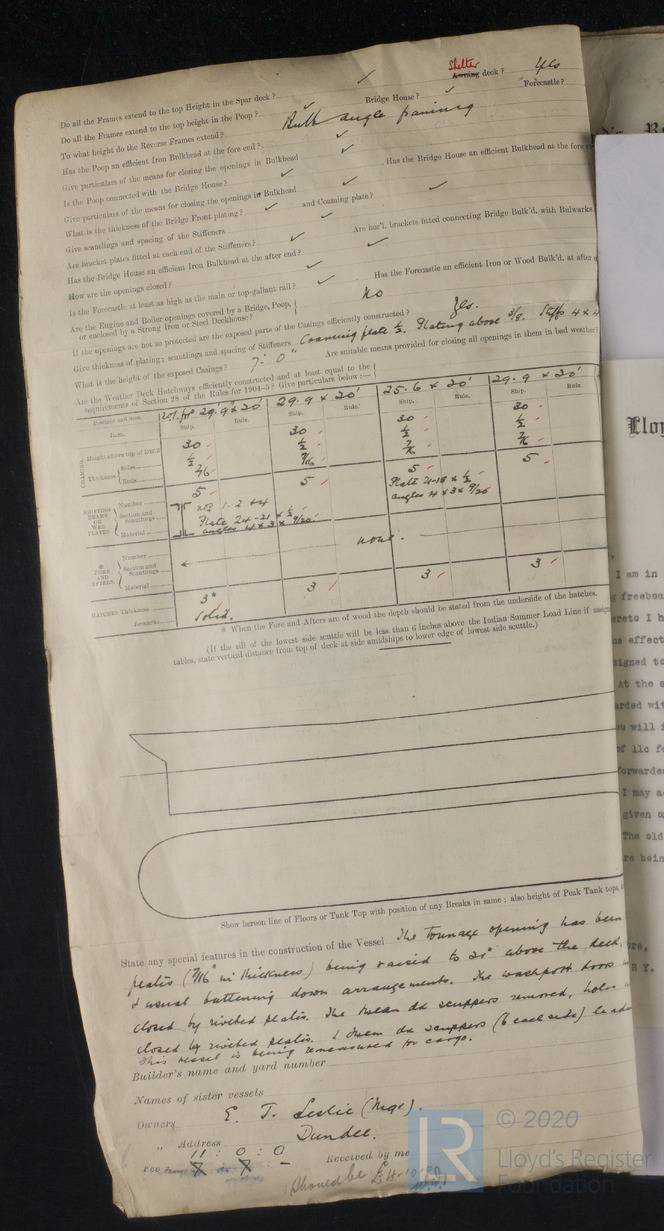 Shelter
Do all the Frames extend to the top Height in the Spar deck? ✓ Awning deck? Yes
Do all the Frames extend to the top height in the Poop? ✓ Bridge House? ✓ Forecastle?
To what height do the Reverse Frames extend? Bulb angle framing
Has the Poop an efficient Iron Bulkhead at the fore end? ✓
Give particulars of the means for closing the openings in Bulkhead ✓ Has the Bridge House an efficient Bulkhead at the fore
Is the Poop connected with the Bridge House? ✓
Give particulars of the means for closing the openings in Bulkhead ✓
What is the thickness of the Bridge Front plating? ✓ and Coaming plate? ✓
Give scantlings and spacing of the Stiffeners ✓
Are bracket plates fitted at each end of the Stiffeners? ✓ Are hor'l. brackets fitted connecting Bridge Bulk'd. with Bulwarks
Has the Bridge House an efficient Iron Bulkhead at the after end? ✓
How are the openings closed? ✓
Is the Forecastle at least as high as the main or top-gallant rail? ✓ Has the Forecastle an efficient Iron or Wood Bulk'd. at after
Are the Engine and Boiler openings covered by a Bridge, Poop, or enclosed by a Strong Iron or Steel Deckhouse? No
If the openings are not so protected are the exposed parts of the Casings efficiently constructed? Yes.
Give thickness of plating; scantlings and spacing of Stiffeners Coaming plate ½. Plating above 3/8. Stiffs 4 x 4
What is the height of the exposed Casings? 7' 0" Are suitable means provided for closing all openings in them in bad weather
Are the Weather Deck Hatchways efficiently constructed and at least equal to the
requirements of Section 28 of the Rules for 1904-5? Give particulars below:—
Position and size. 29.9 x 20' 29.9 x 20' 25.6 x 20' 29.9 x 20'
Item. Ship. Rule. Ship. Rule. Ship. Rule. Ship. Rule.
COAMING Height above top of DECK 30 30 30 30
Thickness Sides ½ ½ ½ ½
Ends 7/16 7/16 7/16
SHIFTING BEAMS OR WEB PLATES Number 5 5 5 5
Section and Scantlings Plate 24-21 x ½ Plate 21-18 x ½
Material angles 4 x 3 x 9/20 angles 4 x 3 x 9/20
FORE AND AFTERS Number
Section and Scantlings none.
Material
HATCHES Thickness 3" 3 3 3
Remarks Solid.
* When the Fore and Afters are of wood the depth should be stated from the underside of the hatches.
(If the sill of the lowest side scuttle will be less than 6 inches above the Indian Summer Load Line if assign
tables, state vertical distance from top of deck at side amidships to lower edge of lowest side scuttle.)
Show hereon line of Floors or Tank Top with position of any Breaks in same; also height of Peak Tank tops,
State any special features in the construction of the Vessel The Tonnage opening has been
plates (7/16" in thickness) being raised to 21" above the deck,
& usual battening down arrangements. The washport doors
closed by riveted plates. The tween dk scuppers removed, holes
closed by riveted plates. 2 tween dk scuppers (6 each side) lead
This vessel is being remeasured for cargo.
Builder's name and yard number
Names of sister vessels
Owners E. T. Leslie (Mgr).
" Address Dundee.
11 : 0 : 0
Fee Received by me
Should be £4-10-0
Lloy
I am in
freeboa
reto I h
s effect
signed to
At the s
arded wit
ou will
of llc fo
forwarde
I may a
given o
The old
re bein
© 2020
Lloyd's Register
Foundation
LR